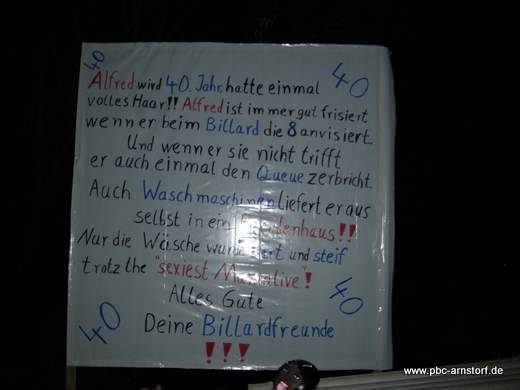 40
40
Alfred wird 40. Jahr, hatte einmal
volles Haar!! Alfred ist immer gut frisiert
wenn er beim Billard die 8 anvisiert.
Und wenn er sie nicht trifft
er auch einmal den Queue zerbricht.
Auch Waschmaschinen liefert er aus
selbst in ein Freudenhaus!!
Nur die Wäsche wurde und steif
trotz the "sexiest Man alive"!
Alles Gute
40
40
Deine Billardfreunde
!!!
www.pbc-arnstorf.de